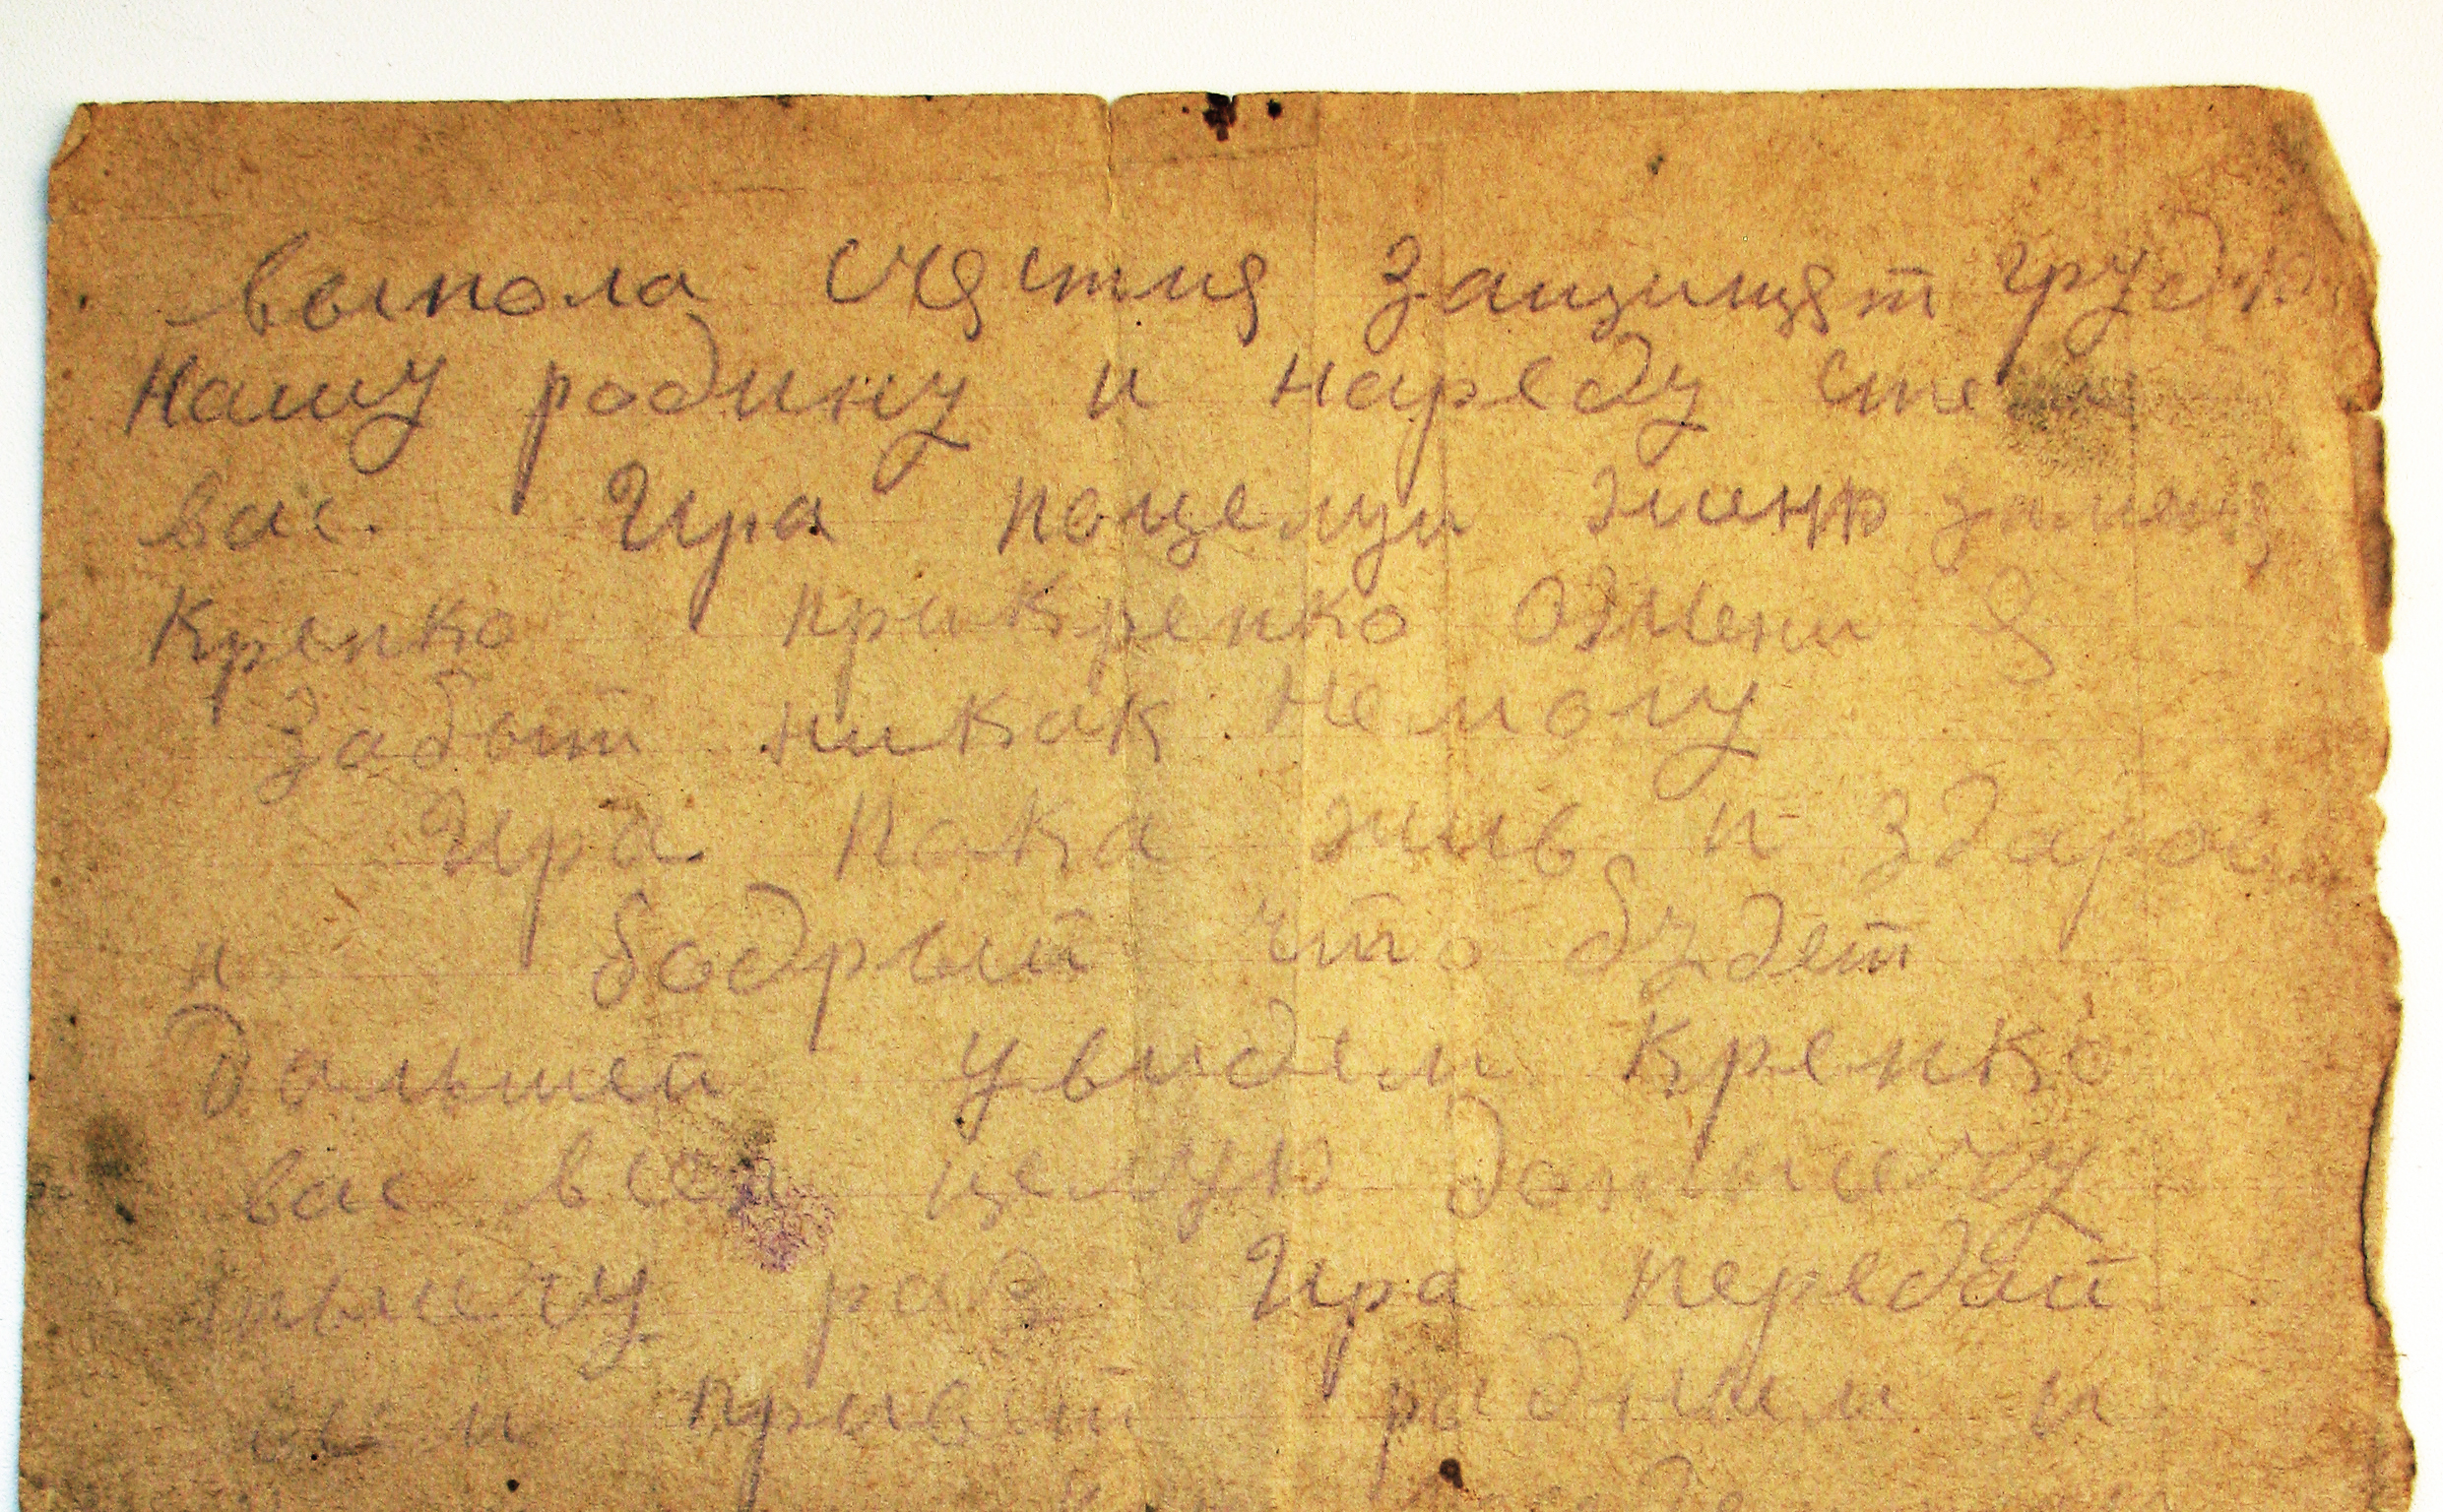 выпола счястия защищят грудю
нашу родину и нареду сте
вас. Ира поцелуи женю
Крепко прикрепко ожени я
забыт никак не могу
Ира пока жив и здаров
и бодрый что будет
дальшей увидем крепко
вас всех целую до тысечу
тысечу раз Ира передай
привет радным и